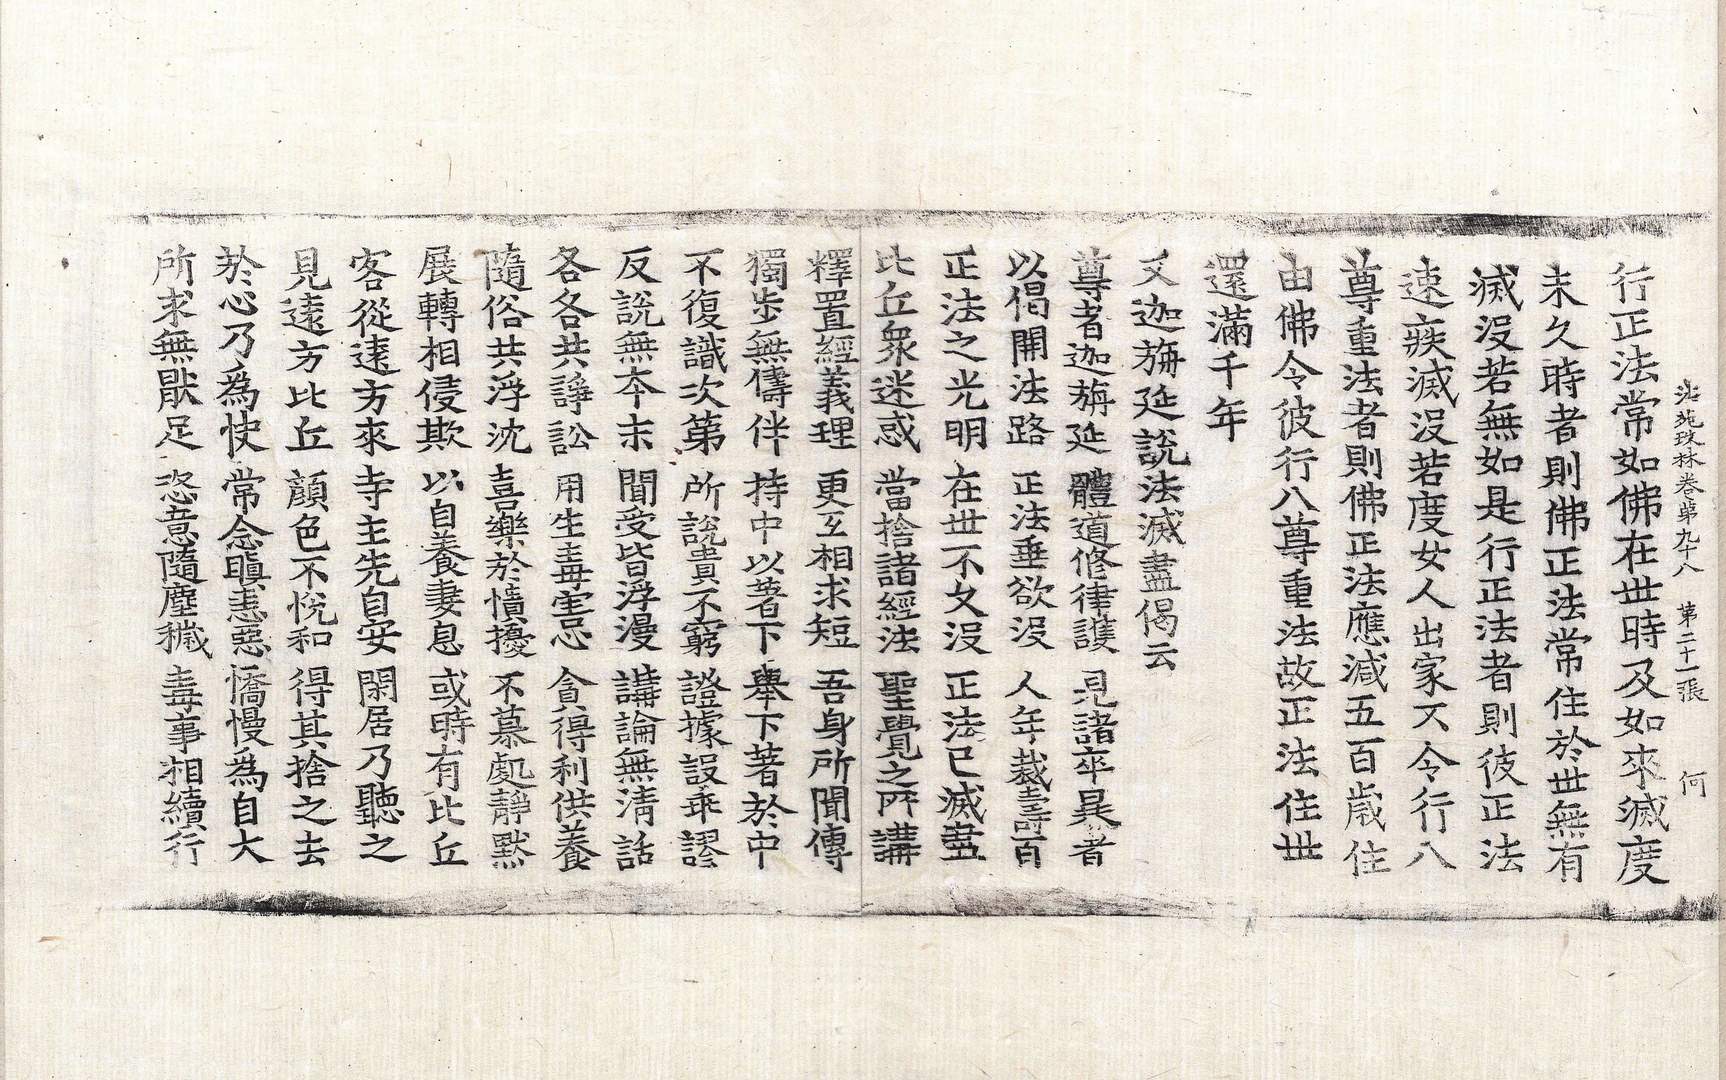 法苑珠林卷第九十八 第二十一張 何
行正法常如佛在世時及如來滅度
未久時者則佛正法常住於世無有
滅沒若無如是行正法者則彼正法
速疾滅沒若度女人出家不令行八
尊重法者則佛正法應減五百歲住
由佛令彼行八尊重法故正法住世
還滿千年
又迦旃延說法滅盡偈云
尊者迦旃延 體道修律護 見諸卒暴者
以偈開法路 正法垂欲沒 人年裁壽百
正法之光明 在世不久沒 正法已滅盡
比丘衆迷惑 當捨諸經法 聖覺之所講
釋置經義理 更互相求短 吾身所聞傳
獨步無儔伴 持中以著下 舉下著於中
不復識次第 所說貴不窮 證據設乖謬
反說無本末 聞受皆浮漫 講論無清話
各各共諍訟 用生毒害忌 貪得利供養
隨俗共浮沈 喜樂於憒擾 不慕處靜默
展轉相侵欺 以自養妻息 或時有比丘
客從遠方來 寺主先自安 閑居乃聽之
見遠方比丘 顔色不悅和 得其捨之去
於心乃爲快 常念瞋恚惡 憍慢爲自大
所求無厭足 恣意隨塵穢 毒事相續行